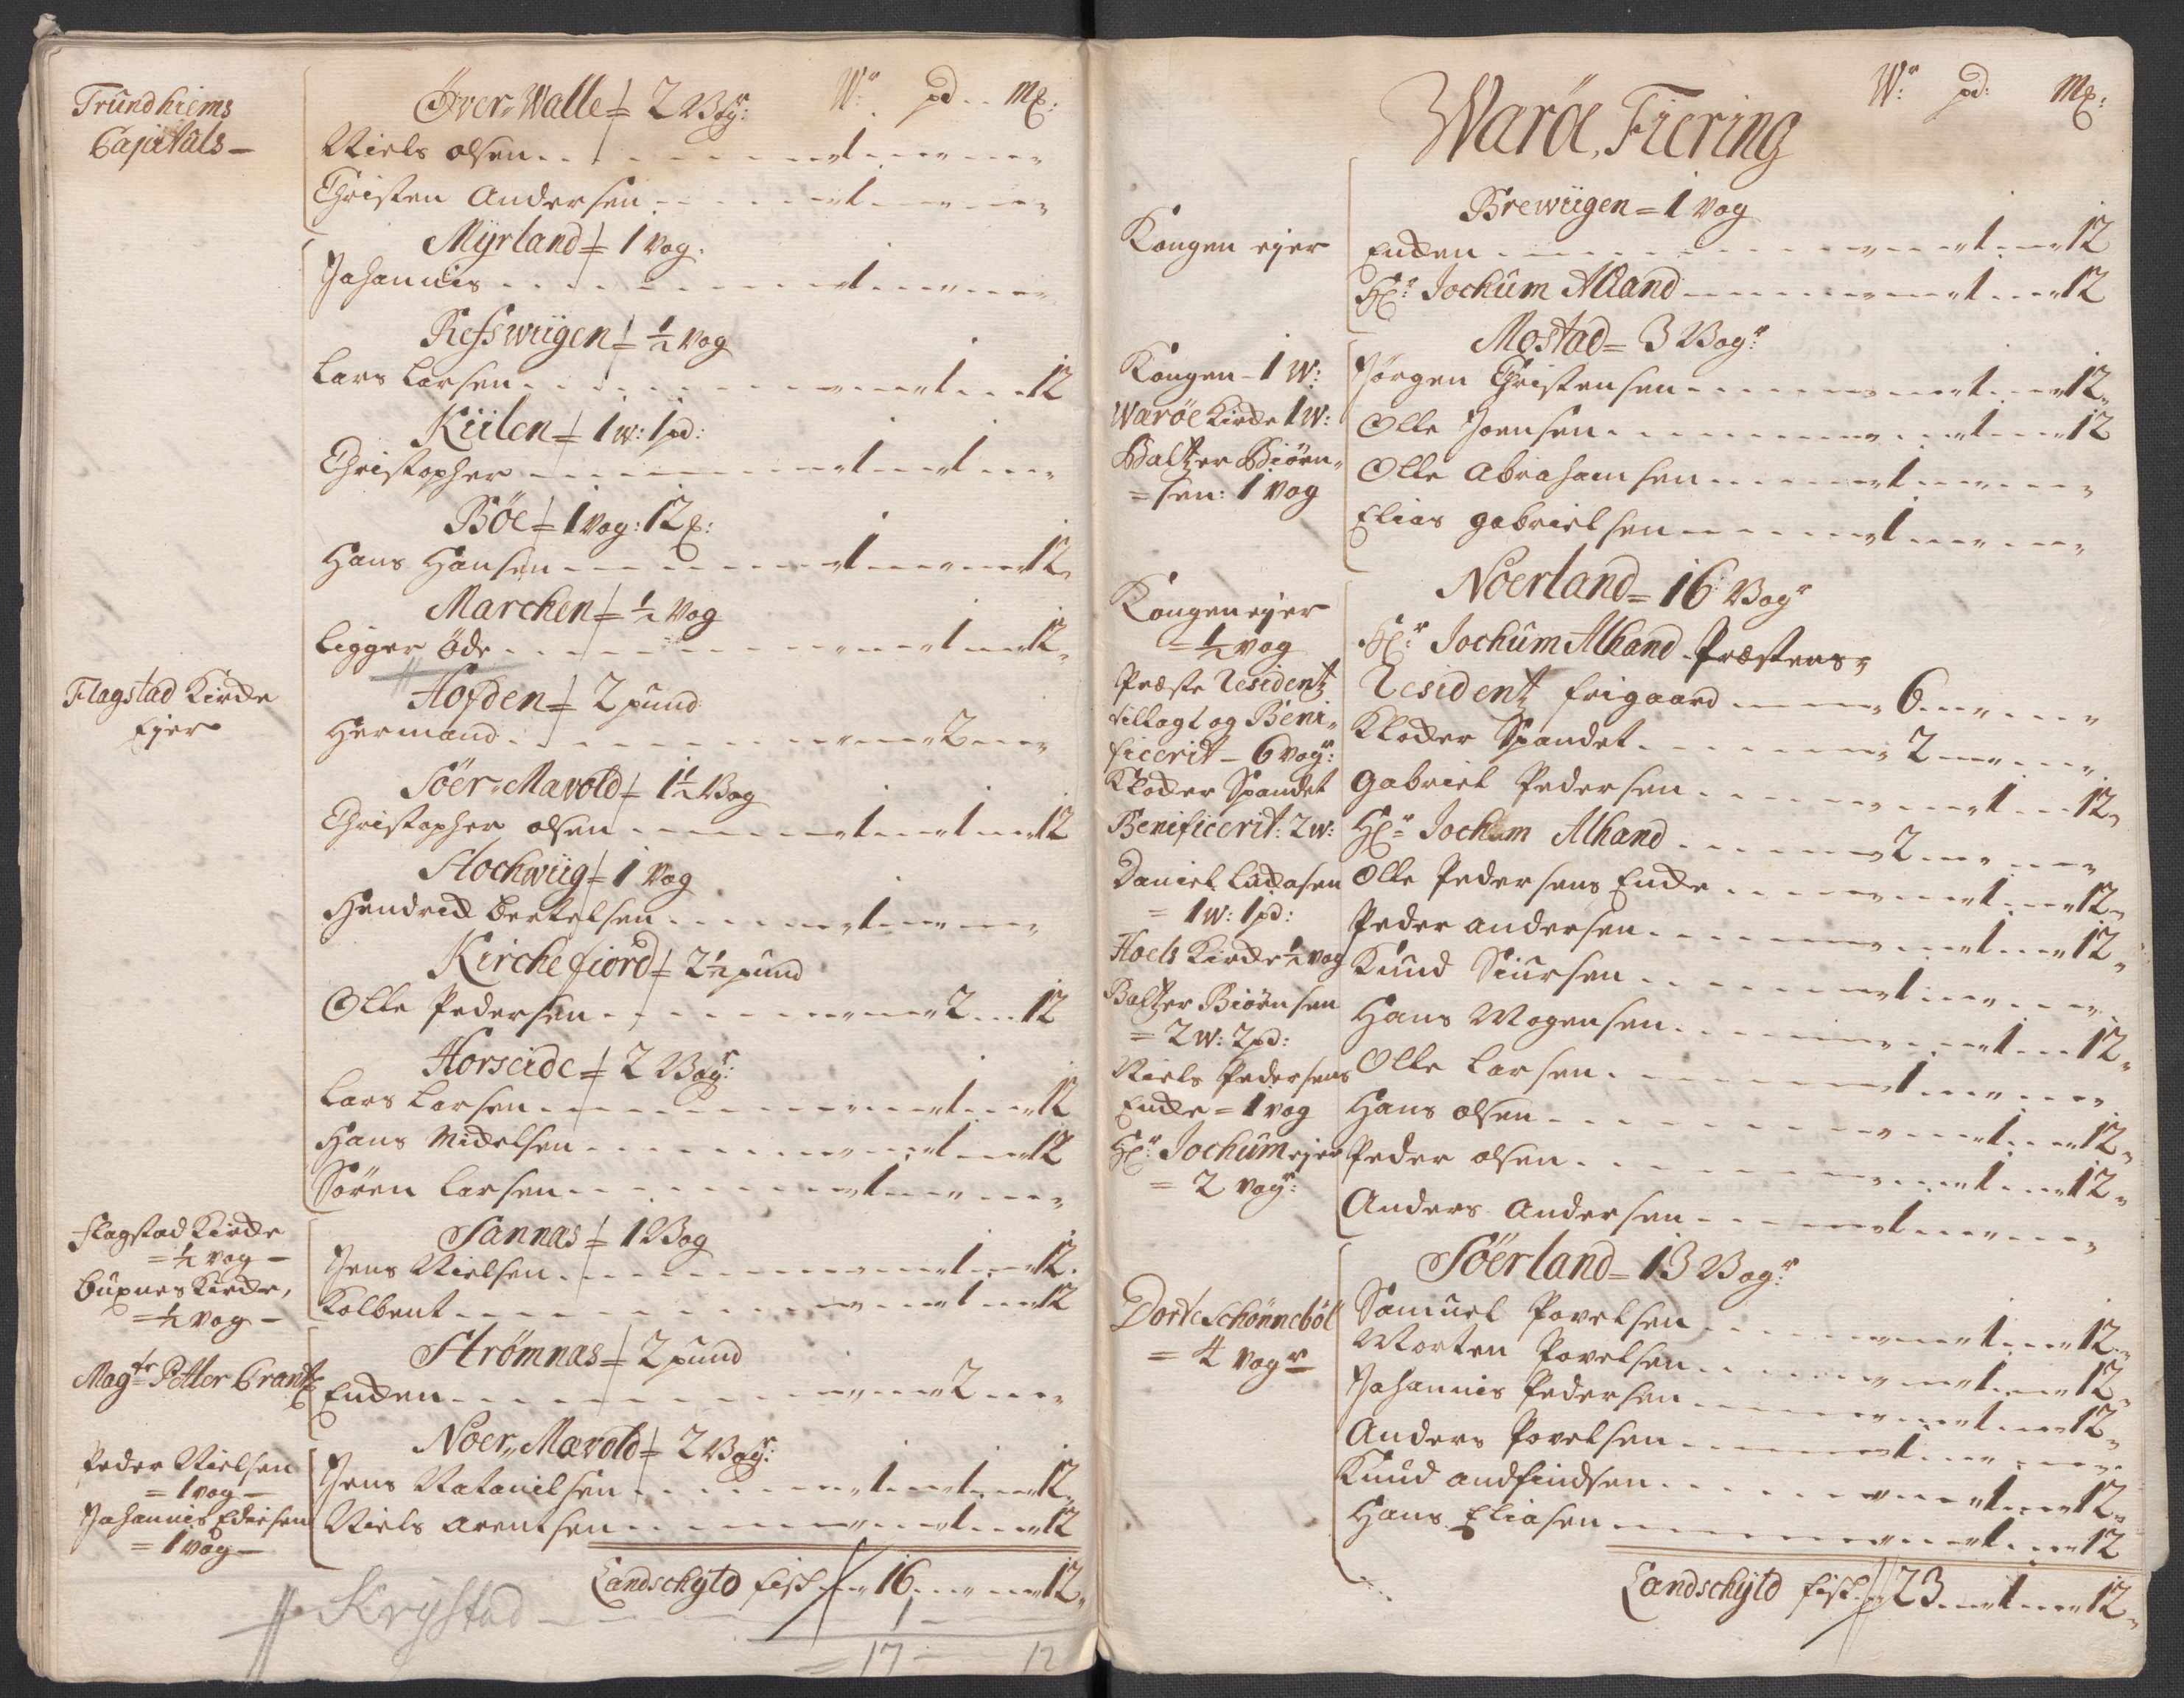 Trundhiems
Capituls –
W: pd.. M&:
Över-Walle = 2 Vogr:
Niels Olsen . . . 1 . . .
Christen Andersen . . . 1 . . .
Myrland = 1 Vog.
Johannis . . . 1 . . .
Refswiigen = ½ Vog
Lars Larsen . . . 1 . . . 12
Kiilen = 1 W: 1 pd:
Christopher . . . 1 . . . 1 . . .
Böe = 1 Vog: 12 &:
Hans Hansen . . . 1 . . . 12
Marchen = ½ Vog
Ligger Öde . . . 1 . . . 12
Flagstad Kircke
Ejer
Hofden = 2 pund
Hermand . . . 2 . . .
Söer-Marold = 1½ Vog
Christopher Olsen . . . 1 . . . 1 . . . 12
Stochwiig = 1 Vog
Hendrick Bertelsen . . . 1 . . .
Kirchefiord = 2½ pund
Olle Pedersen . . . 2 . . . 12
Horseide = 2 Vogr:
Lars Larsen . . . 1 . . . 12
Hans Mickelsen . . . 1 . . . 12
Sören Larsen . . . 1 . . .
Flagstad Kircke
= ½ Vog –
Buxnes Kircke,
= ½ Vog –
Sannas = 1 Vog
Jens Nielsen . . . 1 . . . 12.
Kolbent . . . 1 . . . 12
Magtr Petter Crantz
Strömnas = 2 pund
Encken . . . 2 . . .
Peder Nielsen
= 1 Vog –
Johannis Edisen
= 1 Vog –
Noer-Marold = 2 Vogr:
Jens Natanielsen . . . 1 . . . 1 . . . 12
Niels Arentsen . . . 1 . . . 12
Landschyld fisk . . 16 . . . 12
Krystad – 1 –
= 17 – 12
W: pd: M&:
Waröe, Fiering
Kongen ejer
Brewiigen = 1 Vog
Encken . . . 1 . . . 12
Hr: Jochum Alhand . . . 1 . . . 12
Kongen – 1 W:
Waröe Kircke 1 W:
Baltzer Biörn-
= sen: 1 Vog
Mostad = 3 Vogr:
Jörgen Christensen . . . 1 . . . 12
Olle Joensen . . . 1 . . . 12
Olle Abrahamsen . . . 1 . . .
Elias Gabrielsen . . . 1 . . .
Kongen ejer
= ½ Vog
Præste Residentz
tillagt og Beni-
ficerit – 6 Vogr:
Klocker Spandet
Benificerit: 2 W:
Daniel Luckasen
= 1 W: 1 pd:
Hoels Kircke ½ Vog
Baltzer Biörnsen
= 2 W: 2 pd:
Niels Pedersens
Encke = 1 Vog
Hr: Jochum ejer
= 2 Vogr:
Noerland = 16 Vogr
Hr: Jochum Alhand Præstens
Residentz frigaard . . . 6 . . .
Klocker Spandet . . . 2 . . .
Gabriel Pedersen . . . 1 . . . 12
Hr: Jochum Alhand . . . 2 . . .
Olle Pedersens Encke . . . 1 . . . 12
Peder Andersen . . . 1 . . . 12
Knud Siursen . . . 1 . . .
Hans Mogensen . . . 1 . . . 12
Olle Larsen . . . 1 . . .
Hans Olsen . . . 1 . . . 12
Peder Olsen . . . 1 . . . 12
Anders Andersen . . . 1 . . .
Dorte Schönneböl
= 4 Vogr
Söerland = 13 Vogr:
Samuel Povelsen . . . 1 . . . 12
Morten Povelsen . . . 1 . . . 12
Johannis Pedersen . . . 1 . . . 12
Anders Povelsen . . . 1 . . .
Knud Andfindsen . . . 1 . . . 12
Hans Eliasen . . . 1 . . . 12
Landschyld fisk . . 23 . . . 1 . . . 12